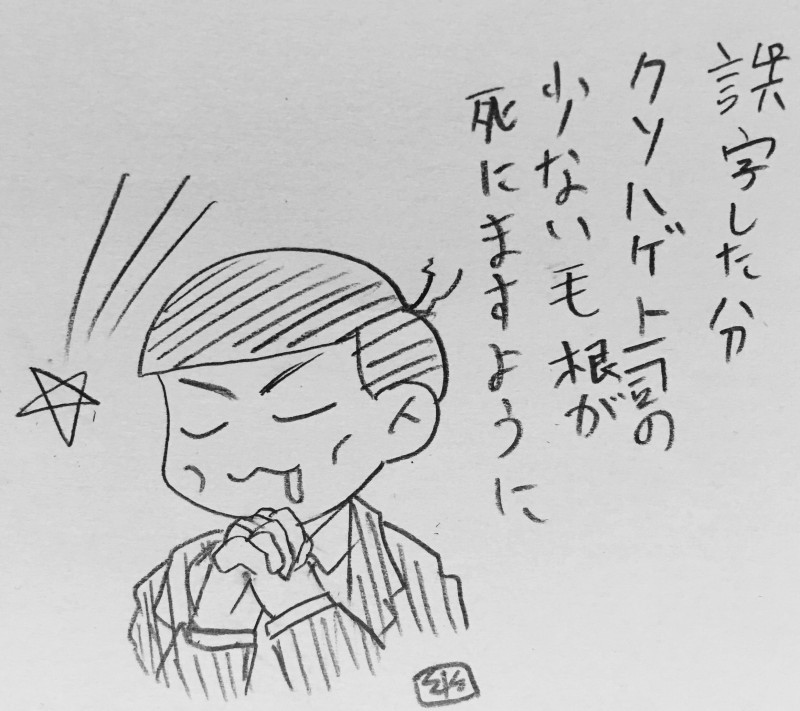 誤字した分
クソハゲ上司の
少ない毛根が
死にますように